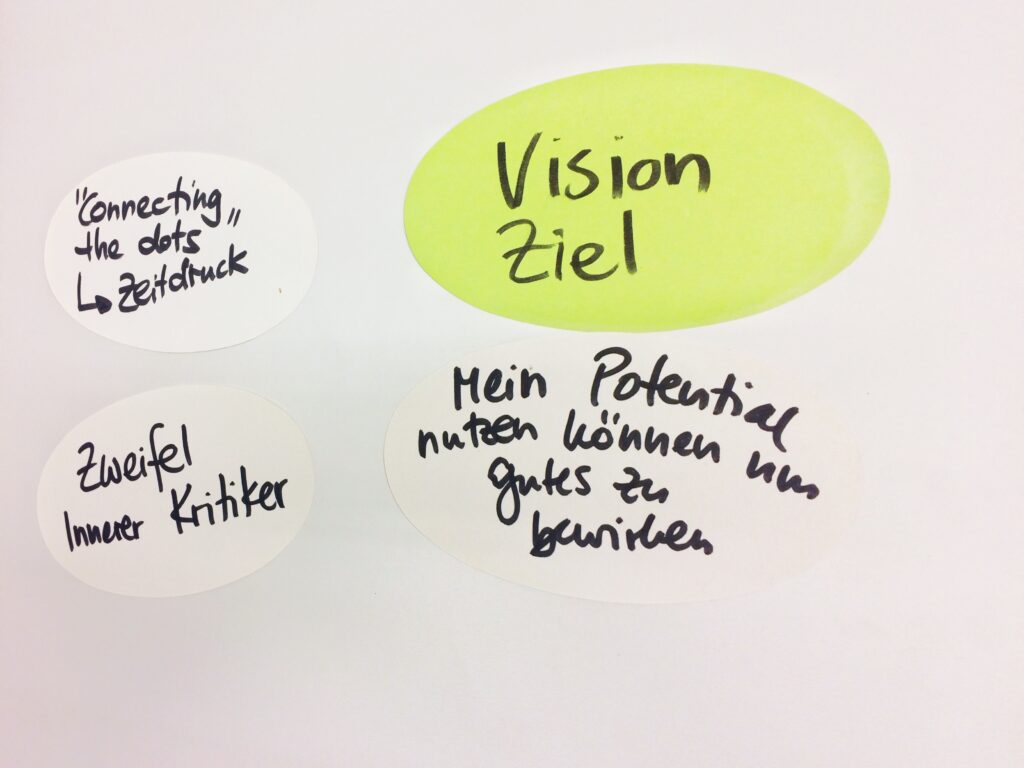 "Connecting
the dots"
↳ Zeitdruck
Zweifel
Innerer Kritiker
Vision
Ziel
Mein Potential
nutzen können um
gutes zu
bewirken